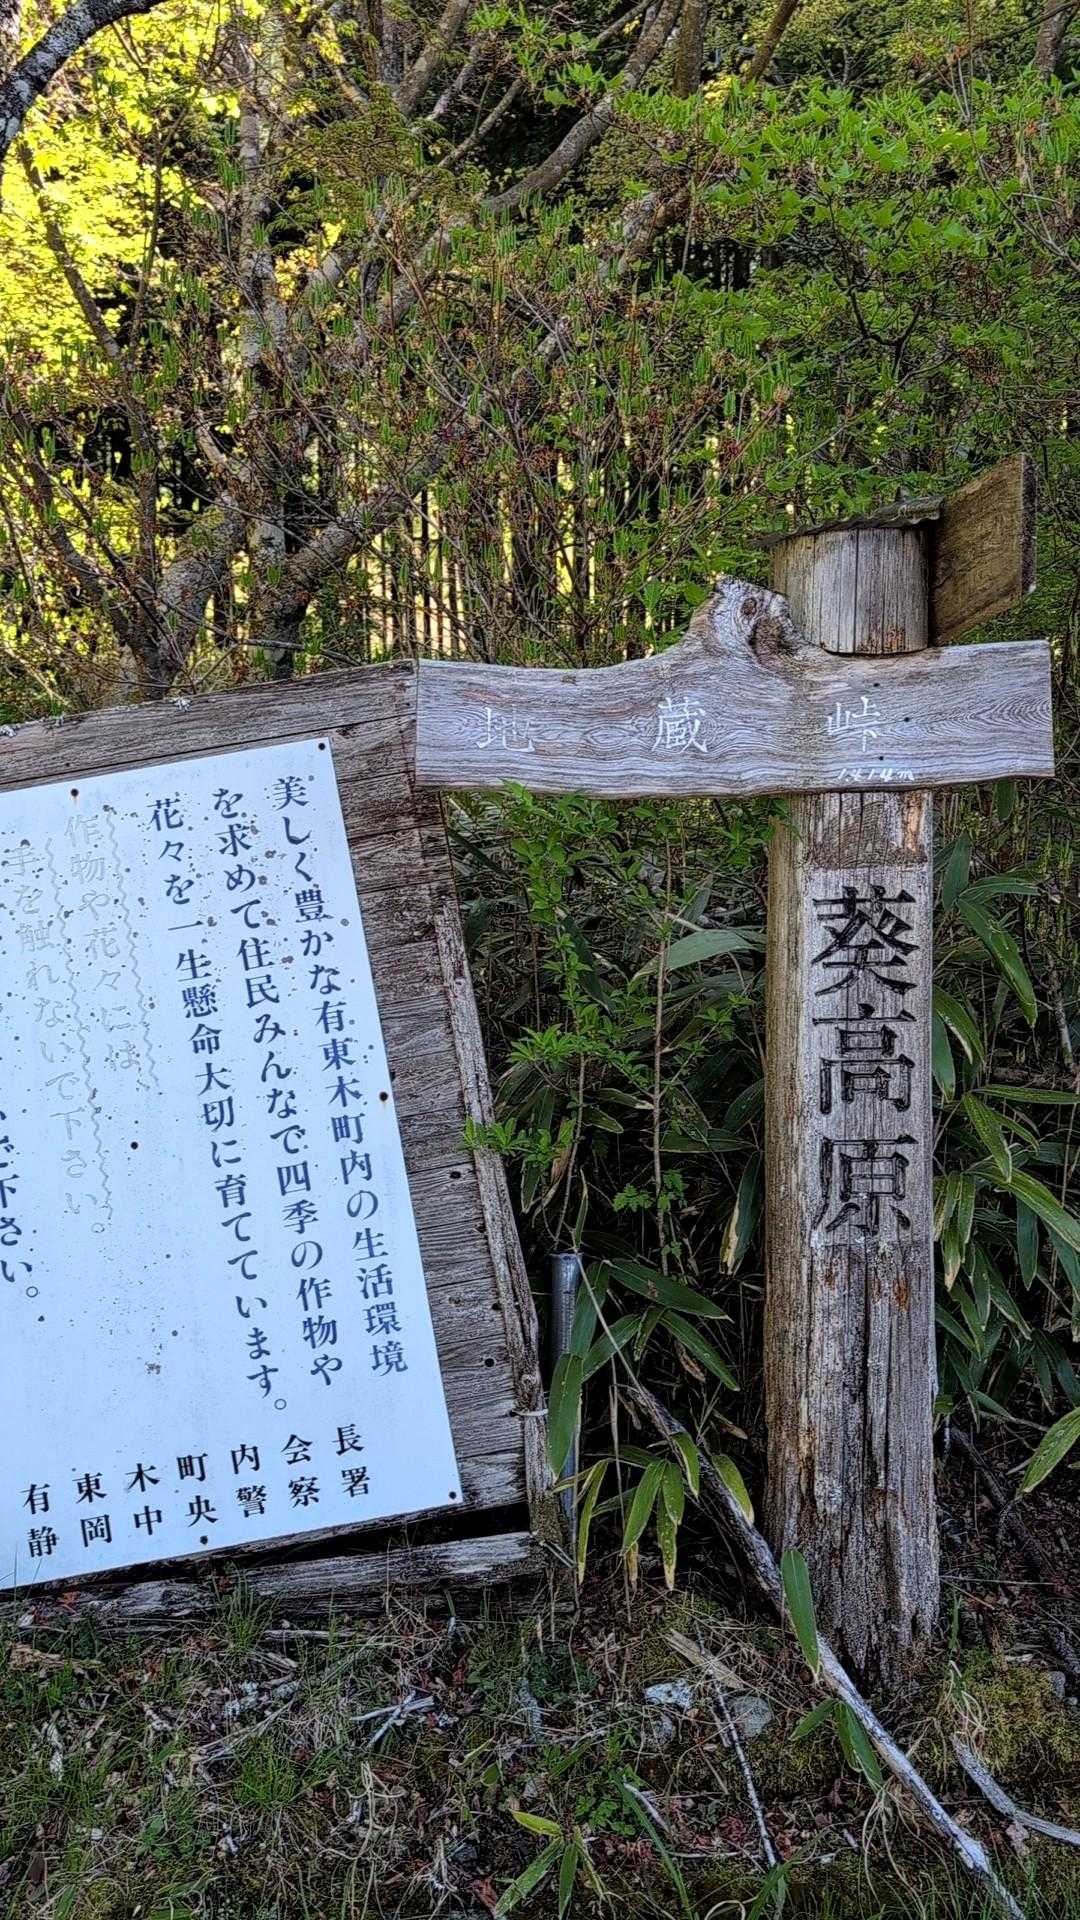 地蔵峠
1414m
葵高原
美しく豊かな有東木町内の生活環境
を求めて住民みんなで四季の作物や
花々を一生懸命大切に育てています。
作物や花々には、
手を触れないで下さい。
で下さい。
有東木町内会長
静岡中央警察署